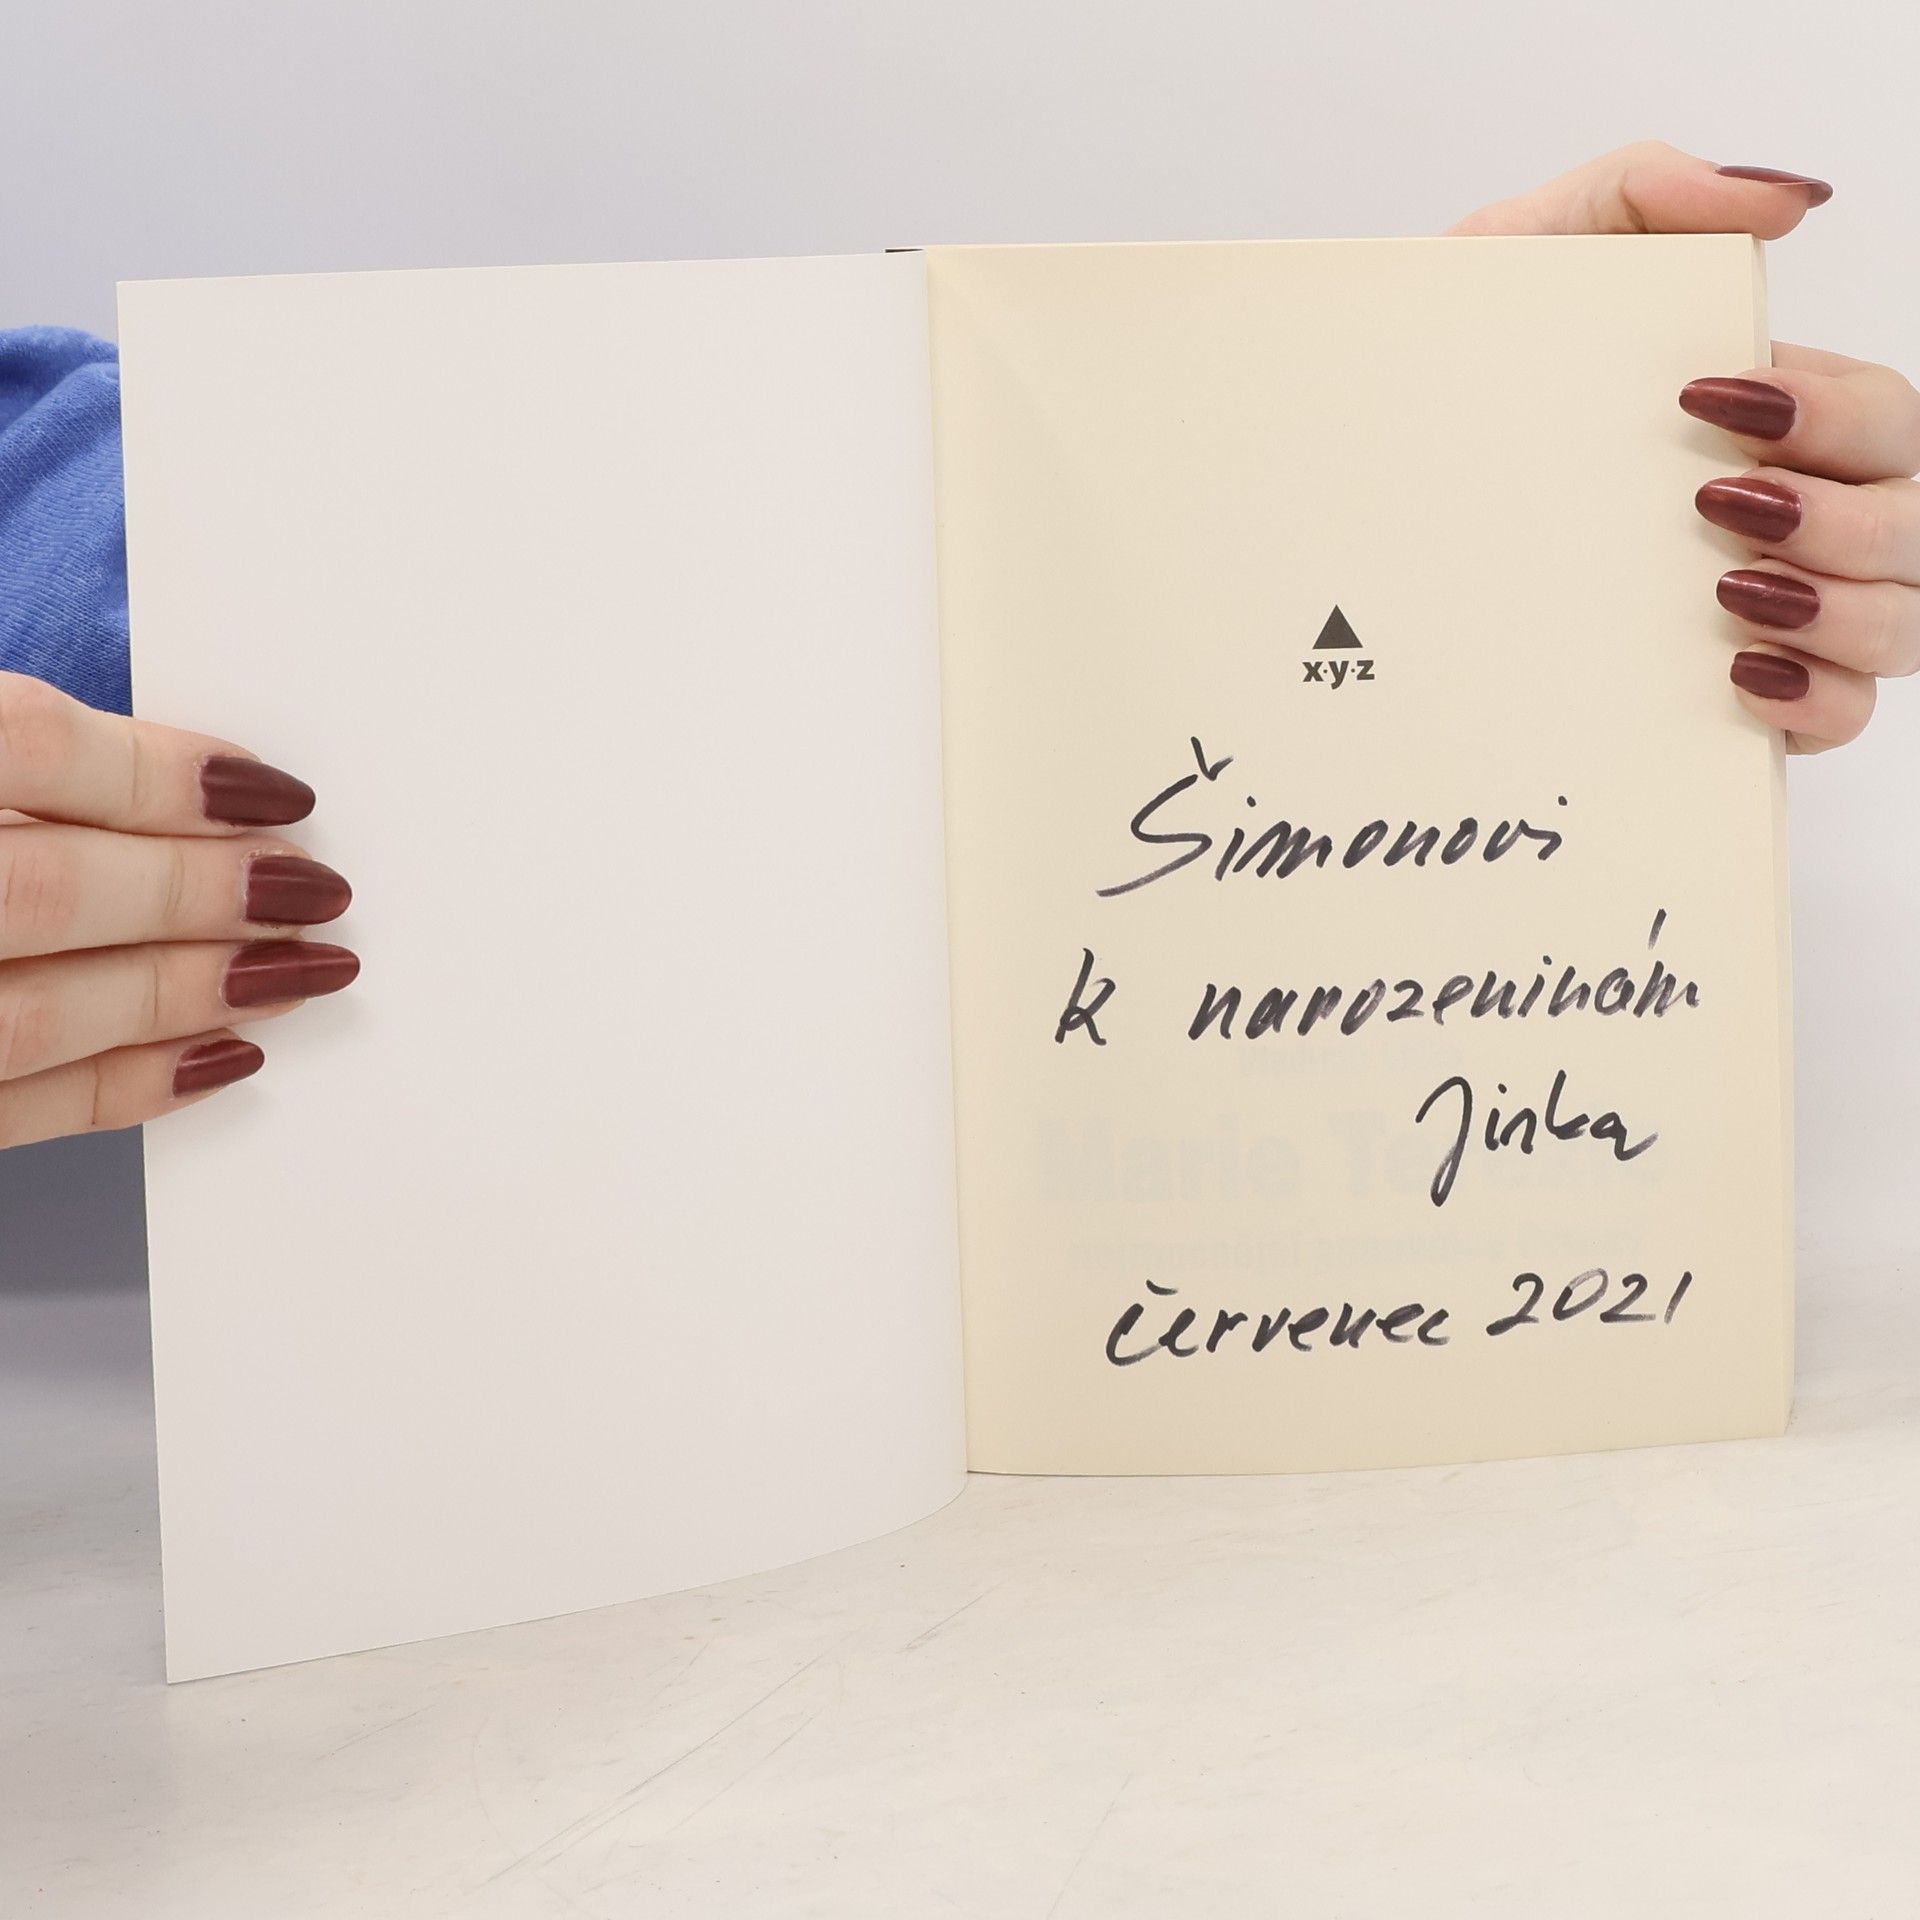 x·y·z
Šimonovi
k narozeninám
Jirka
červenec 2021